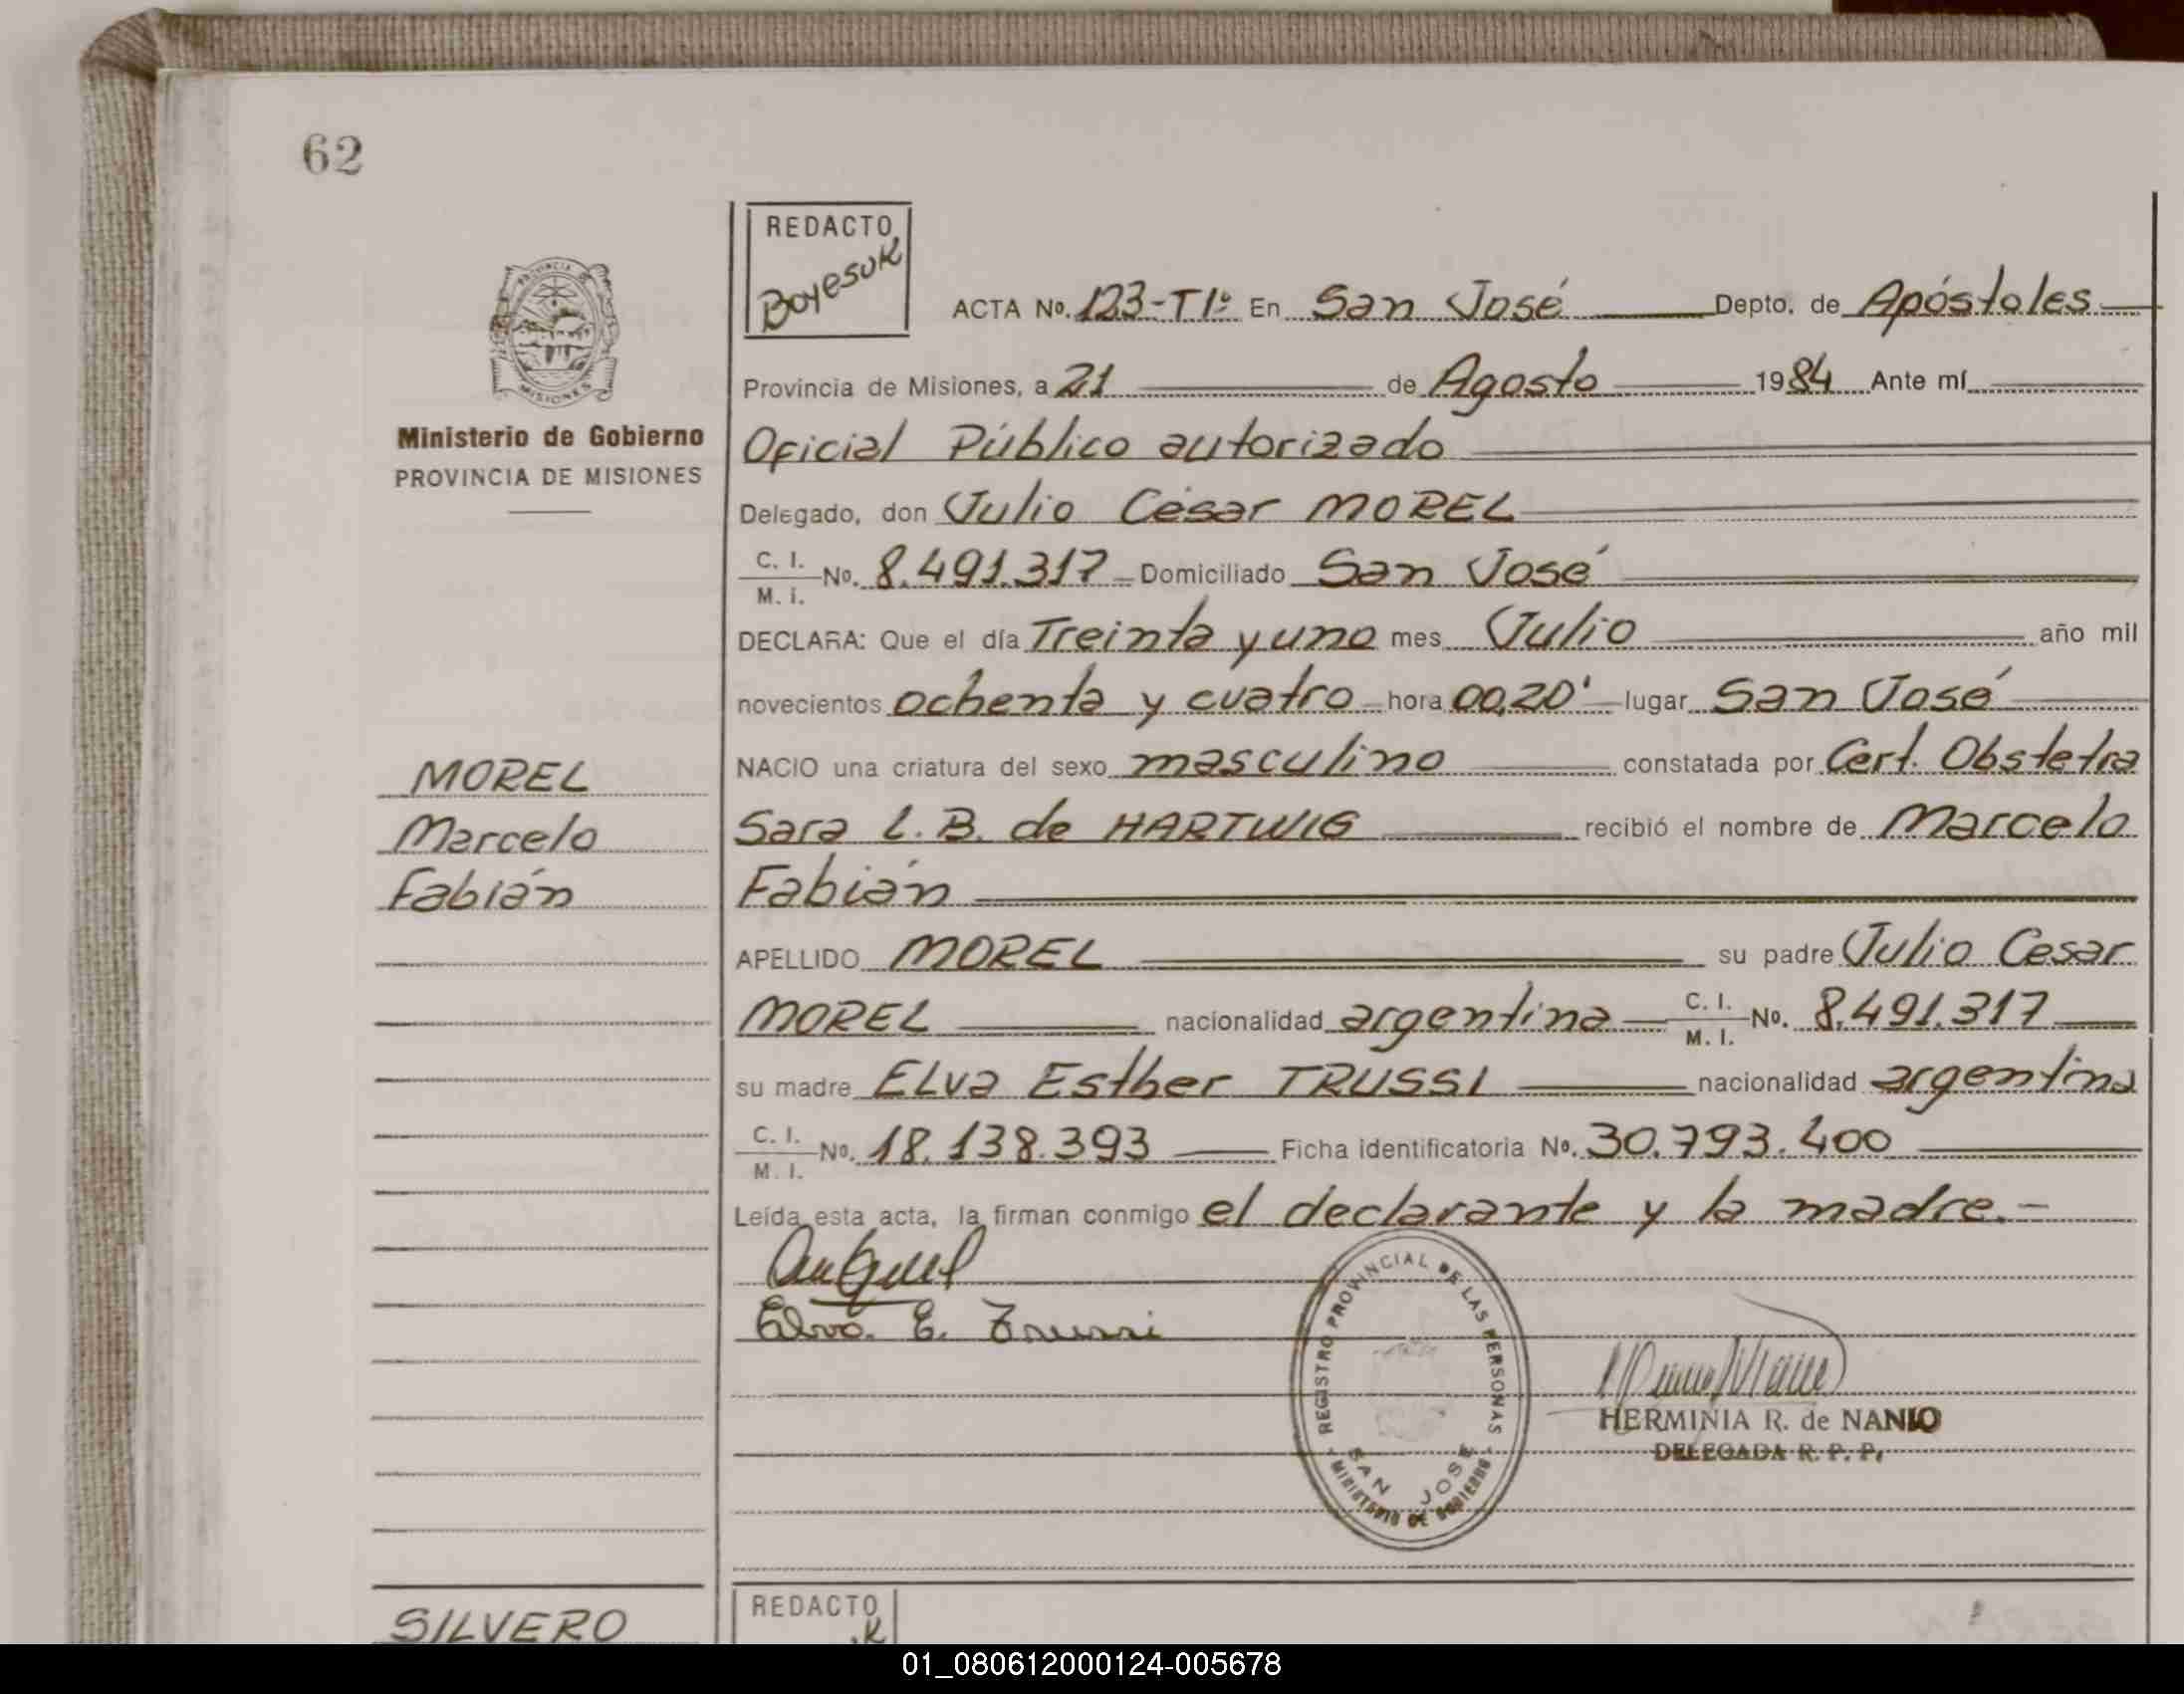 62
REDACTO
Boyesuk
ACTA No. 123-T1º En San José Depto. de Apóstoles
Provincia de Misiones, a 21 de Agosto 1984 Ante mí
Ministerio de Gobierno
PROVINCIA DE MISIONES
Oficial Público autorizado
Delegado, don Julio César MOREL
C. I. M. I. No. 8.491.317 Domiciliado San José
DECLARA: Que el día Treinta y uno mes Julio año mil
novecientos ochenta y cuatro hora 00,20' lugar San José
MOREL
Marcelo
Fabián
NACIO una criatura del sexo masculino constatada por Cert. Obstetra
Sara L. B. de HARTWIG recibió el nombre de Marcelo
Fabián
APELLIDO MOREL su padre Julio Cesar
MOREL nacionalidad argentina C. I. M. I. No. 8.491.317
su madre ELva Esther TRUSSI nacionalidad argentina
C. I. M. I. No. 18.138.393 Ficha identificatoria No. 30.793.400
Leída esta acta, la firman conmigo el declarante y la madre.-
Elva. E. Trussi
REGISTRO PROVINCIAL DE LAS PERSONAS
MINISTERIO DE GOBIERNO
SAN JOSE
HERMINIA R. de NANIO
DELEGADA R. P. P.
SILVERO
REDACTO
01_080612000124-005678